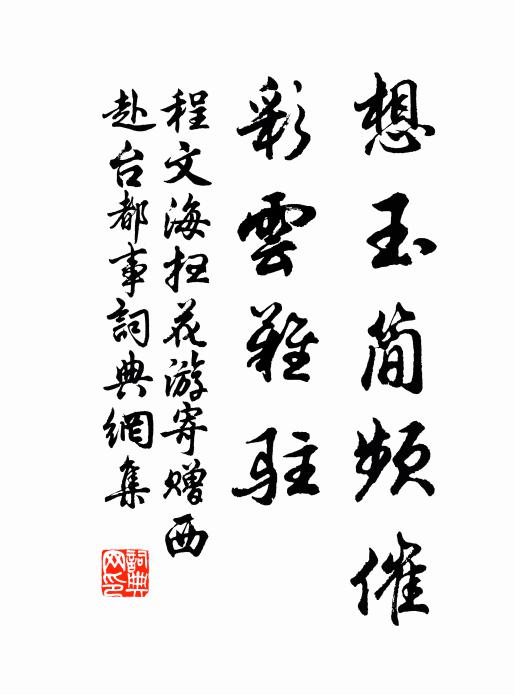 想玉简频催
彩雲難駐
程文海扫花游寄赠西
赴台都事詞典網集
詞典网印